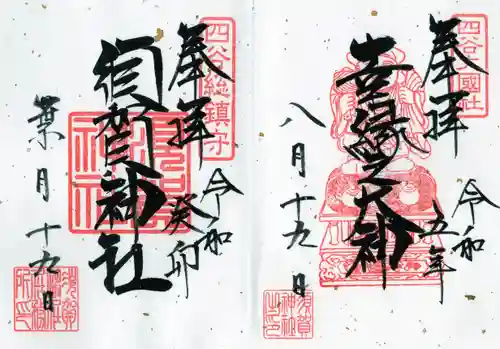 奉拝
令和五年
吉縁之大神
八月十九日
須賀神社之印
四谷総鎮守
奉拝
令和癸卯
須賀神社
須賀神社
葉月十九日